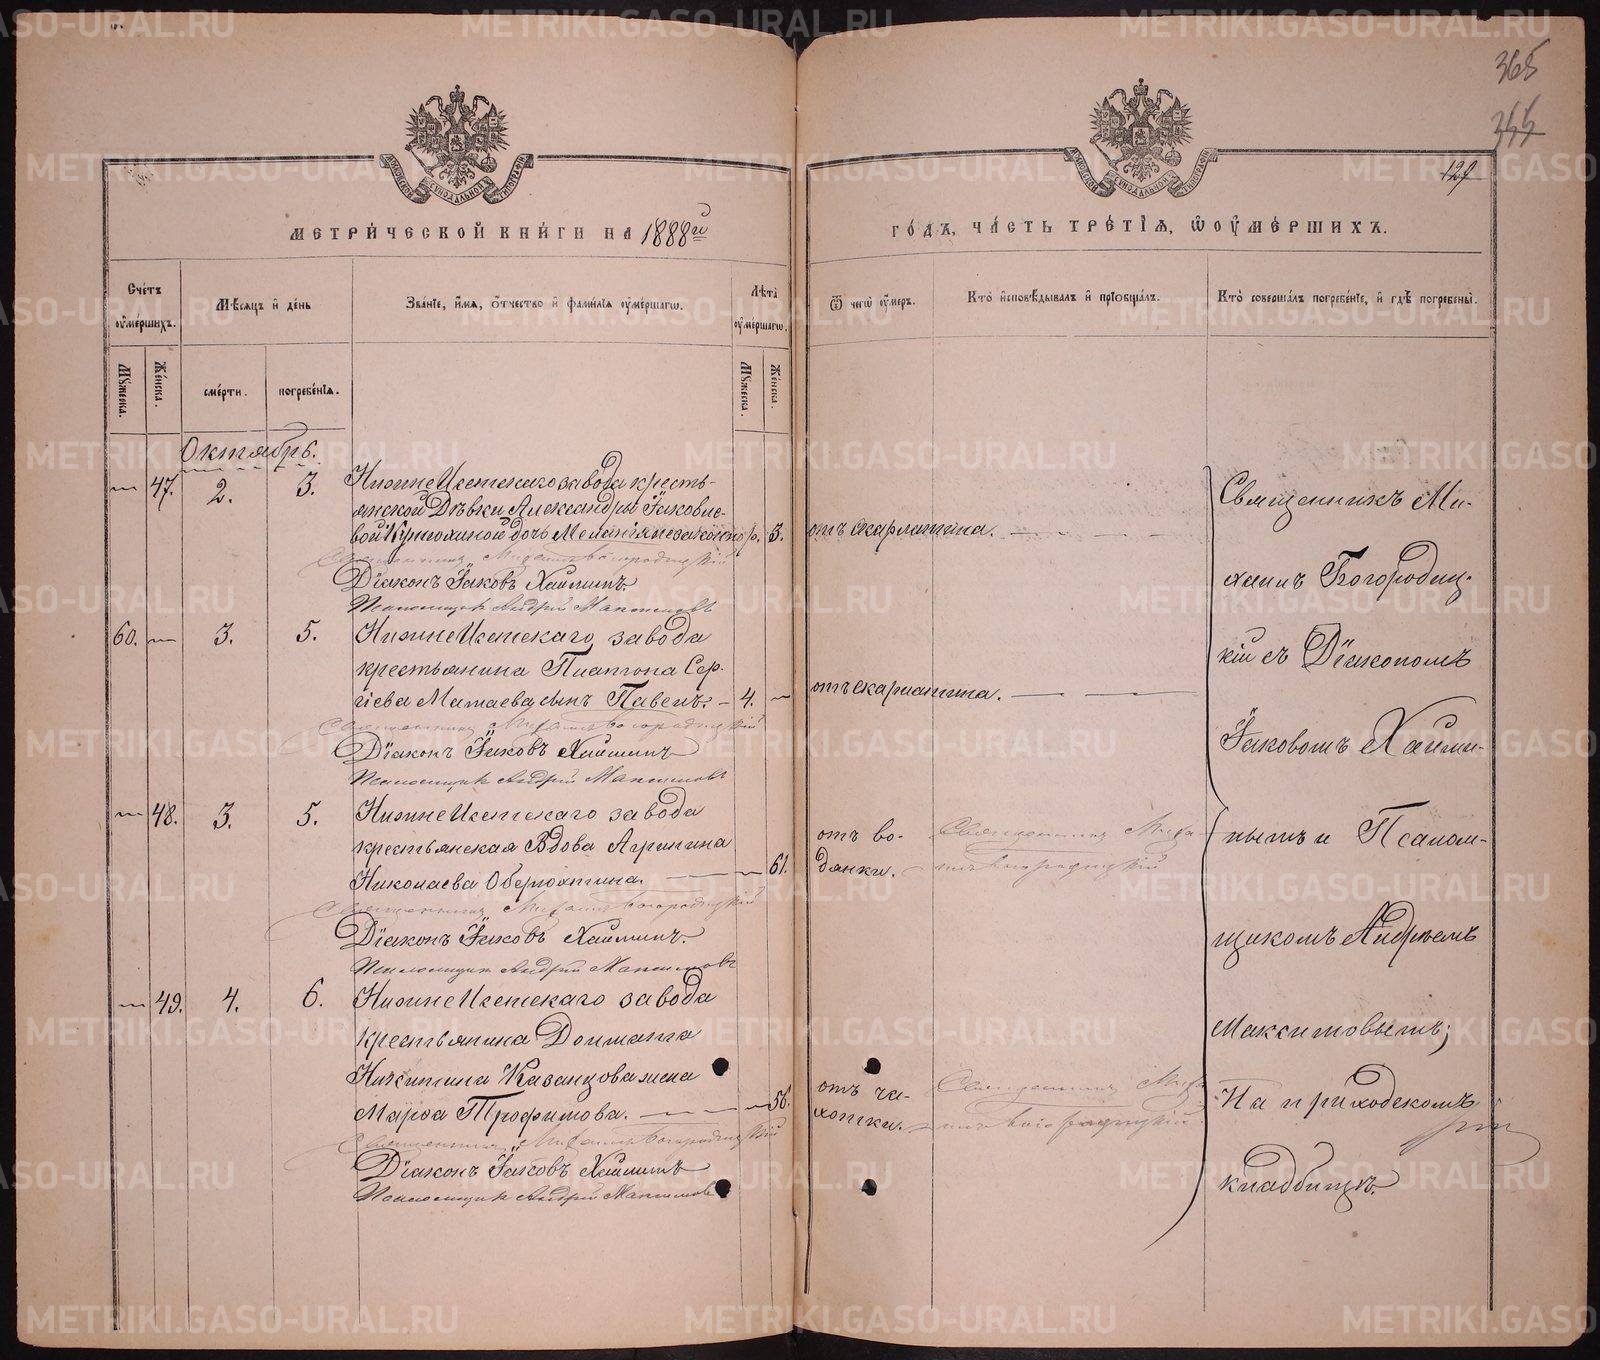 365
344
129
МЕТРИ́ЧЕСКОЙ КНИ́ГИ НА 1888й
ГО́ДЪ, ЧА́СТЬ ТРЕ́ТІЯ, Ѡ ОУ҆МЕ́РШИХЪ.
Сче́тъ оу҆ме́ршихъ.
Мѣсяцъ и҆ де́нь
Зва́нїе, и҆́мя, о҆́тчество и҆ фами́лїя оу҆ме́ршагѡ.
Лѣта̀ оу҆ме́ршагѡ.
Ѿ чегѡ̀ оу҆́меръ.
Кто̀ и҆сповѣ́дывалъ и҆ прїобща́лъ.
Кто̀ соверша́лъ погребе́нїе, и҆ гдѣ̀ погребены̀.
Мꙋжеска.
Же́нска.
сме́рти.
погребе́нїя.
Мꙋжеска.
Же́нска.
Октябрь.
47. 2. 3. НижнеИсетскаго завода кресть-
янской Дѣвки Александры Іаковле-
вой дочь Меланія незаконно р. 3. отъ скарлатина.
Священникъ Михаилъ Богородицкій
Діаконъ Іаковъ Хайминъ
Псаломщикъ Андрей Максимовъ
60. 3. 5. НижнеИсетскаго завода
крестьянина Платона Сер-
гіева Матаева сынъ Павелъ. 4. отъ скарлатина.
Священникъ Михаилъ Богородицкій
Діаконъ Іаковъ Хайминъ
Псаломщикъ Андрей Максимовъ
48. 3. 5. НижнеИсетскаго завода
крестьянская Вдова Агрипина
Николаева Оберюхтина. 61. отъ во-
дянки. Священникъ Миха-
илъ Богородицкій
Священникъ Михаилъ Богородицкій
Діаконъ Іаковъ Хайминъ.
Псаломщикъ Андрей Максимовъ
49. 4. 6. НижнеИсетскаго завода
крестьянина Доримата
Никитина Казанцова жена
Марѳа Трофимова. 56. отъ ча-
хотки. Священникъ Миха-
илъ Богородицкій
Священникъ Михаилъ Богородицкій
Діаконъ Іаковъ Хайминъ
Псаломщикъ Андрей Максимовъ
Священникъ Ми-
хаилъ Богородиц-
кій съ Діакономъ
Іаковомъ Хайми-
нымъ и Псалом-
щикомъ Андреемъ
Максимовымъ;
На приходскомъ
кладбищѣ.
METRIKI.GASO-URAL.RU